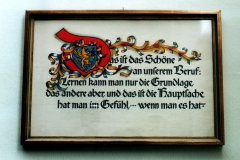 Das ist das Schöne
an unserem Beruf:
Lernen kann man nur die Grundlage,
das andere aber, und das ist die Hauptsache
hat man im Gefühl, ... wenn man es hat